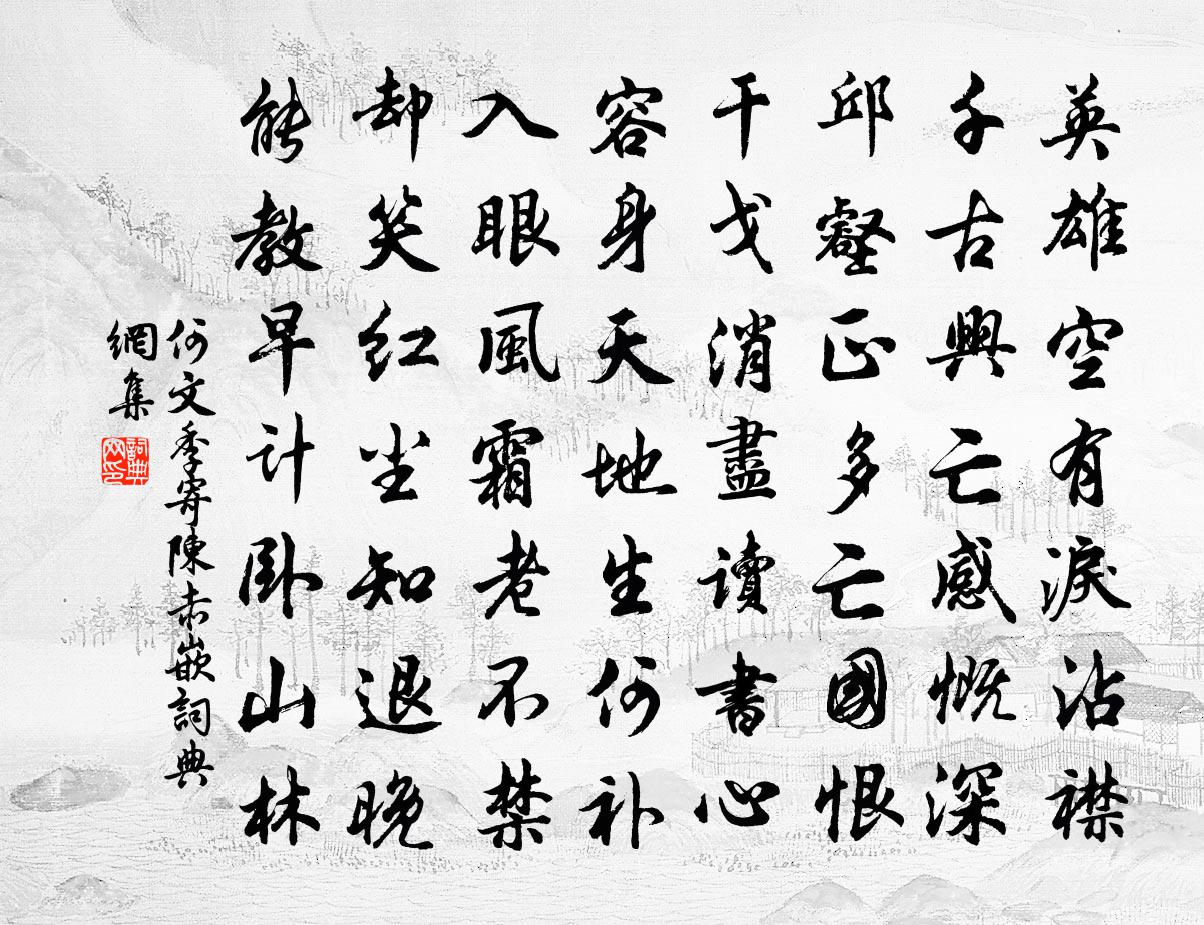 英雄空有淚沾襟
千古興亡感慨深
邱壑正多亡國恨
干戈消盡讀書心
容身天地生何补
入眼風霜老不禁
却笑红尘知退晚
能教早计卧山林
何文季寄陳赤嵌詞典
網集
詞典
网印